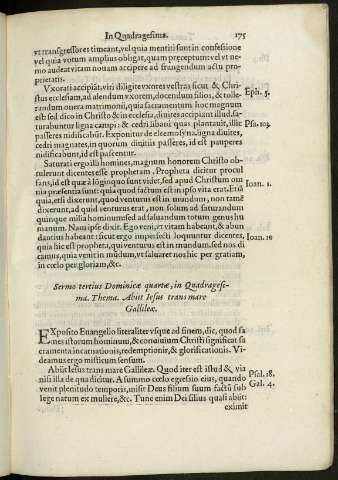 In Quadragesima. 175
vt transgressores timeant, vel quia mentiti sunt in confessione
vel quia votum amplius obligat, quam præceptum: vel vt ne-
mo audeat vitam nouam accipere ad frangendum actu pro-
prietatis.
Vxorati accipiāt. viri diligite vxores vestras sicut & Chri-
stus ecclesiam, ad alendum vxorem, docendum filios, & tolle-
randum onera matrimonij, quia sacramentum hoc magnum
est sed dico in Christo & in ecclesia, diuites accipiant illud. sa-
turabuntur ligna campi: & cedri libani quas plantauit, illic
passeres nidificabūt. Exponitur de eleemosyna. ligna diuites,
cedri magnates, in quorum diuitijs passeres, id est pauperes
nidificabunt, id est pascentur.
Ephe. 5.
Psa. 103.
Saturati ergo illi homines, magnum honorem Christo ob-
tulerunt dicentes esse prophetam. Propheta dicitur procul
fans, id est quæ à longinquo sunt videt, sed apud Christum om
nia præsentia sunt: quia quod factum est in ipso vita erat. Et ō
quia, etsi dixerunt, quod venturus est in mundum, non tamē
dixerunt, ad quid venturus erat, non solum ad saturandum
quinque milia hominum sed ad saluandum totum genus hu
manum. Nam ipse dixit. Ego veni, vt vitam habeant, & abun
dantius habeant: sicut ergo imperfecti loquuntur dicentes,
quia hic est propheta, qui venturus est in mundum, sed nos di
camus, quia venit in mūdum, vt saluet nos hic per gratiam,
in cœlo per gloriam, &c.
Ioan. 1.
Ioan. 10
Sermo tertius Dominicæ quartæ, in Quadragesi-
ma. Thema. Abijt Iesus trans mare
Galileæ.
EXposito Euangelio litteraliter vsque ad finem, dic, quod sa
mes istorum hominum, & conuiuium Christi significat sa
cramenta incarnationis, redemptionis, & glorificationis. Vi-
deamus ergo misticum sensum.
Abijt Iesus trans mare Galileæ. Quod iter est istud & via
nisi illa de qua dicitur. A summo cœlo egressio eius, quando
venit plenitudo temporis, misit Deus filium suum factū sub
lege natum ex muliere, &c. Tunc enim Dei filius quasi abijt:
Psal. 18.
Gal. 4.
eximit